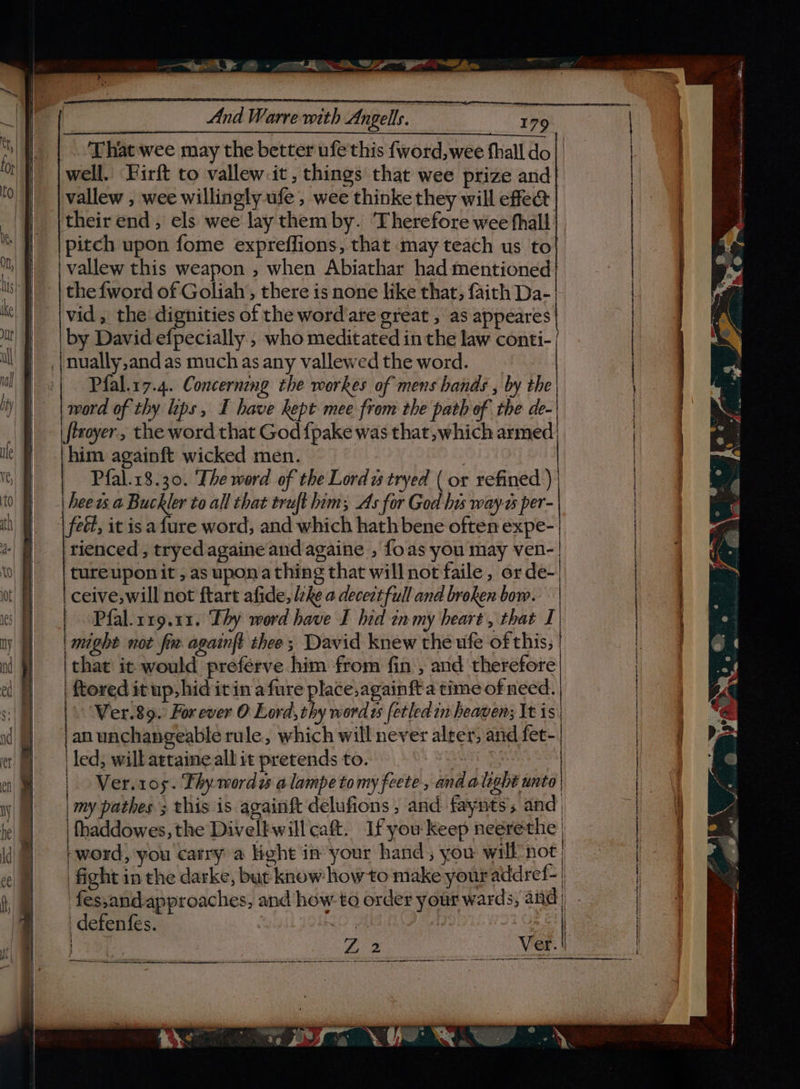 And Warre with Angells. 179
That wee may the better uſe this ſword, wee ſhall do
well. Firſt to vallew it, things that wee prize and
vallew, wee willingly uſe, wee thinke they will effect
their end, els wee lay them by. Therefore wee ſhall
pitch upon ſome expreſſions, that may teach us to
vallew this weapon, when Abiathar had mentioned
the ſword of Goliah, there is none like that, ſaith Da-
vid, the dignities of the word are great, as appeares
by David eſpecially, who meditated in the law conti-
nually, and as much as any vallewed the word.
Pſal.17.4. Concerning the workes of mens hands, by the
word of thy lips, I have kept mee from the path of the de-
ſtroyer, the word that God ſpake was that, which armed
him againſt wicked men.
Pſal.18.30. The word of the Lord is tryed (or refined)
hee is a Buckler to all that truſt him; As for God his way is per-
fect, it is a ſure word, and which hath bene often expe-
rienced, tryed againe and againe, ſo as you may ven-
ture upon it, as upon a thing that will not faile, or de-
ceive, will not ſtart aſide, like a deceitfull and broken bow.
Pſal.119.11. Thy word have I hid in my heart, that I
might not ſin againſt thee; David knew the uſe of this,
that it would preſerve him from ſin, and therefore
ſtored it up, hid it in a ſure place, againſt a time of need.
Ver.89. For ever O Lord, thy word is ſetled in heaven; It is
an unchangeable rule, which will never alter, and ſet-
led, will attaine all it pretends to.
Ver.105. Thy word is a lampe to my feete, and a light unto
my pathes; this is againſt deluſions, and faynts, and
ſhaddowes, the Divell will caſt. If you keep neere the
word, you carry a light in your hand, you will not
fight in the darke, but know how to make your addreſ-
ſes, and approaches, and how to order your wards, and
defenſes.
Z 2 Ver.